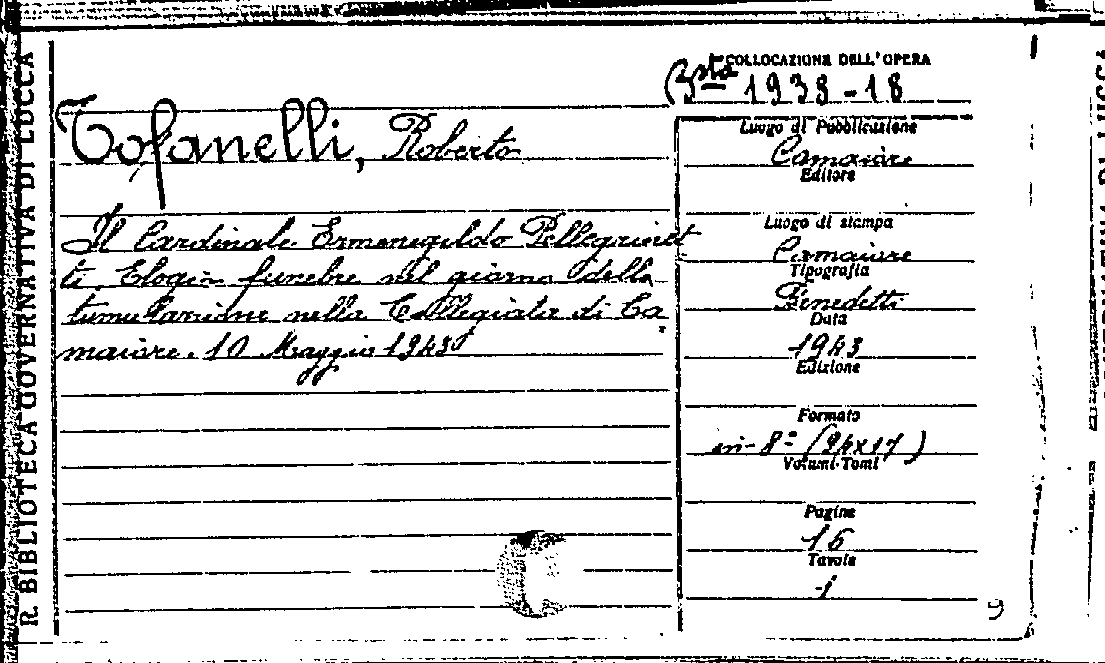 R. BIBLIOTECA GOVERNATIVA DI LUCCA
COLLOCAZIONE DELL'OPERA
Bsta 1938-18
Tofanelli, Roberto
Il Cardinale Ermenegildo Pellegrinet
ti. Elogio funebre nel giorno della
tumulazione nella Collegiata di Ca
maiore. 10 Maggio 1943
Luogo di Pubblicazione
Camaiore
Editore
Luogo di stampa
Camaiore
Tipografia
Benedetti
Data
1943
Edizione
Formato
in-8º (24x17)
Volumi-Tomi
Pagine
16
Tavole
1
9